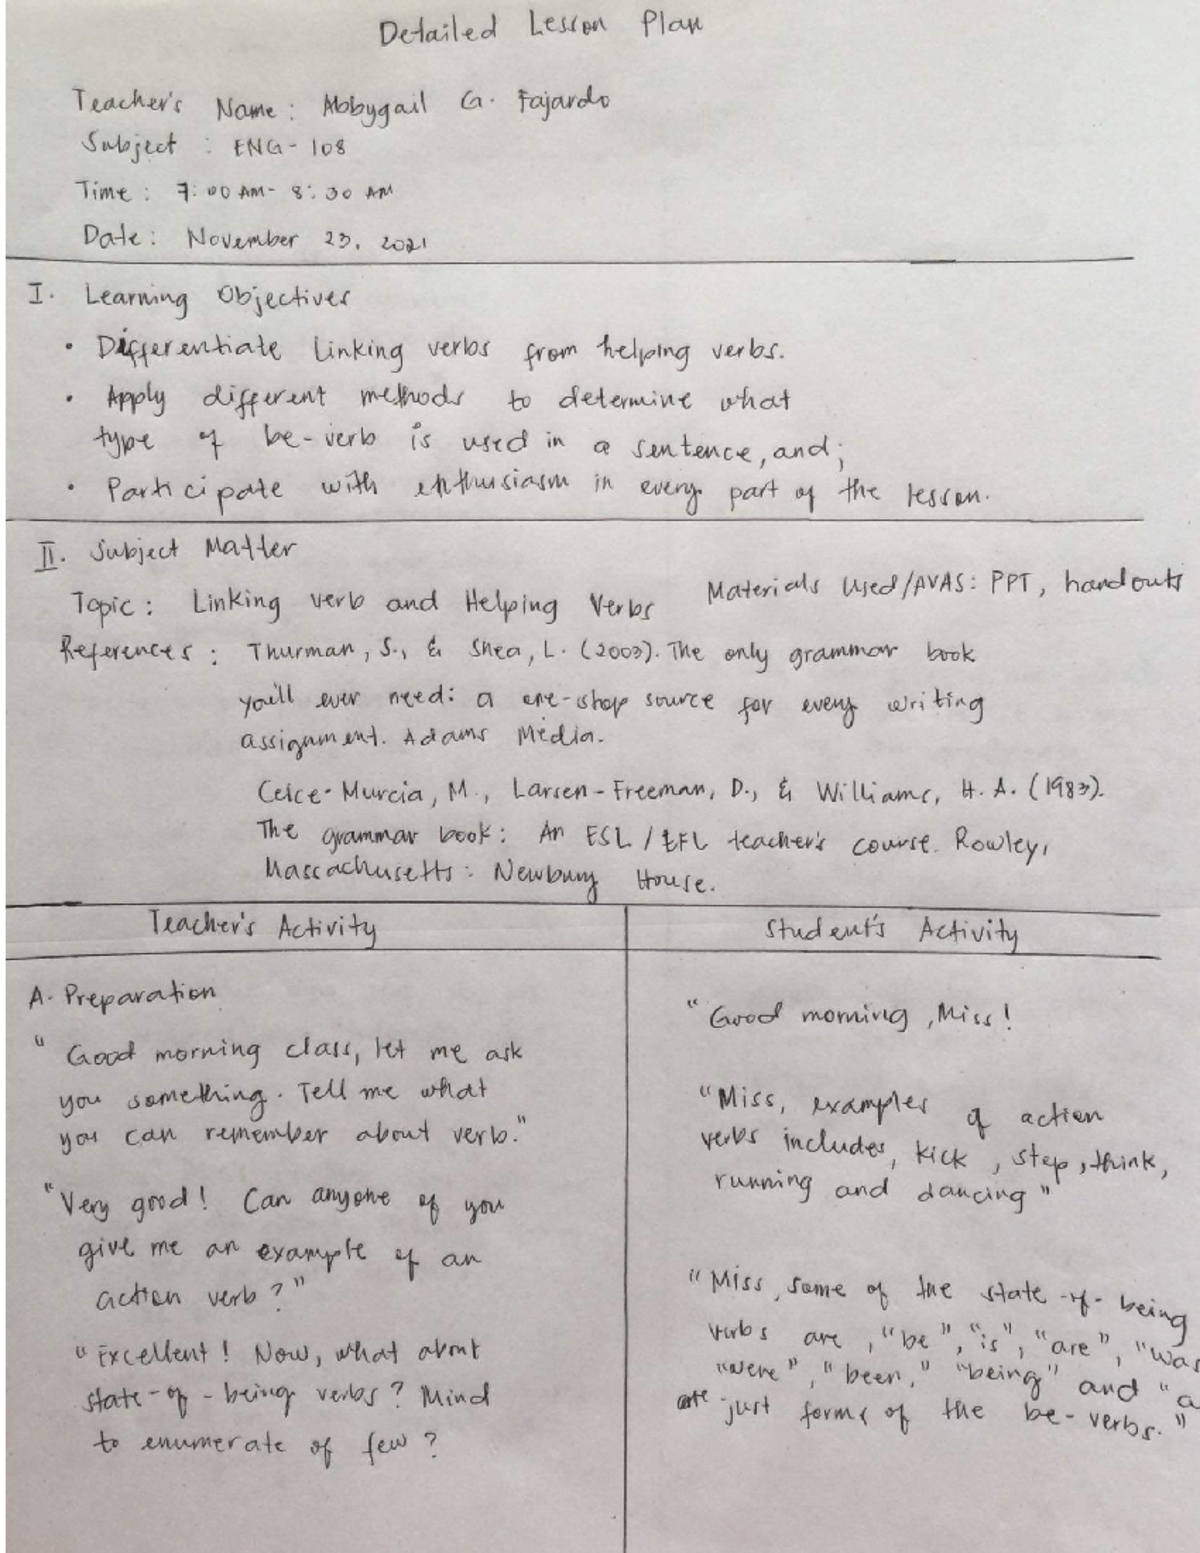 Detailed Lesson Plan
Teacher's Name : Abbygail G. Fajardo
Subject : ENG - 108
Time : 7:00 AM - 8:30 AM
Date : November 23, 2021
I. Learning Objectives
• Differentiate linking verbs from helping verbs.
• Apply different methods to determine what
type of be-verb is used in a sentence, and;
• Participate with enthusiasm in every part of the lesson.
II. Subject Matter
Topic : Linking verb and Helping Verbs
Materials Used/AVAS: PPT, handouts
References : Thurman, S., & Shea, L. (2003). The only grammar book
you'll ever need: a one-stop source for every writing
assignment. Adams Media.
Celce-Murcia, M., Larsen-Freeman, D., & Williams, H. A. (1983).
The grammar book: An ESL/EFL teacher's course. Rowley,
Massachusetts: Newbury House.
Teacher's Activity
Student's Activity
A. Preparation
" Good morning class, let me ask
you something. Tell me what
you can remember about verb."
"Very good! Can anyone of you
give me an example of an
action verb?"
"Excellent! Now, what about
state-of-being verbs? Mind
to enumerate of few?
"Good morning, Miss!
"Miss, examples of action
verbs includes, kick, step, think,
running and dancing"
"Miss, some of the state-of-being
verbs are, "be", "is", "are", "was
"were", "been," "being" and "a
are just forms of the be-verbs."